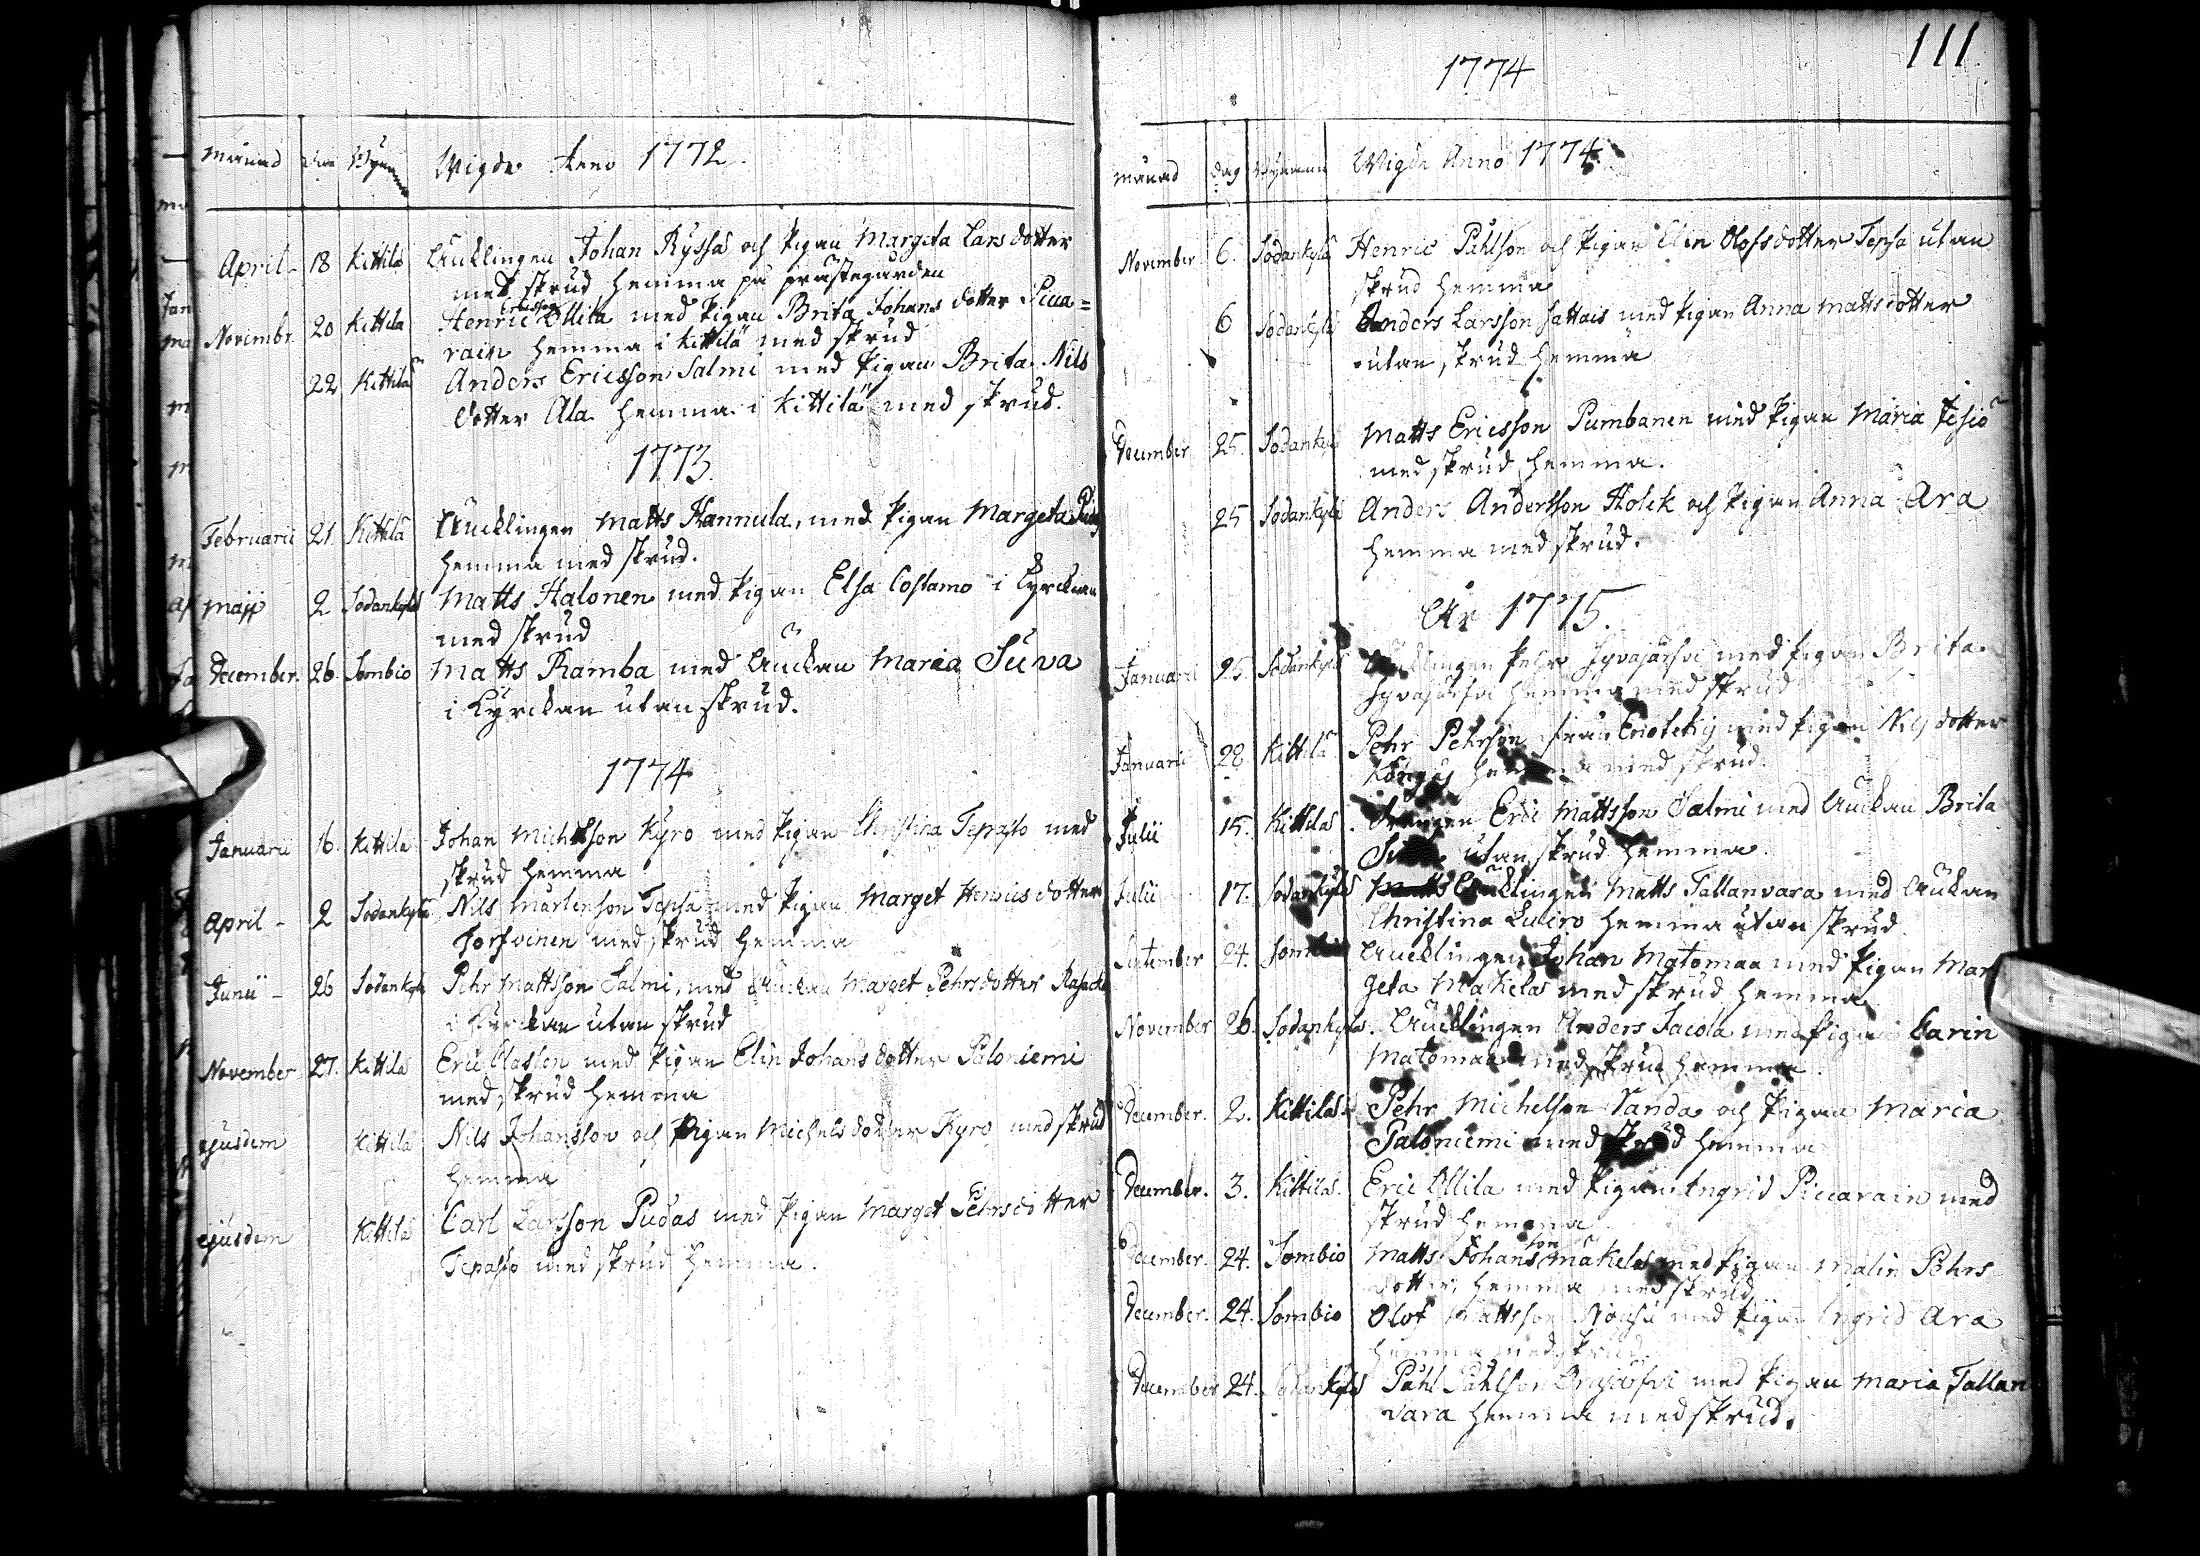 månad dag Byarna Wigde Anno 1772.
April 18 Kittilä Änklingen Johan Ryssä och Pigan Margeta Larsdotter
med skrud hemma på prästegården
Novembr. 20 Kittilä Henric Ericsson Ollila med Pigan Brita Johans dotter Picca=
rain hemma i Kittilä med skrud
22 Kittilä Anders Ericsson Salmi med Pigan Brita Nils
dotter Ala hemma i Kittilä med skrud.
1773
Februarii 21 Kittilä Äncklingen Matts Hannula, med Pigan Margeta
hemma med skrud.
Maji 2 Sodankylä Matts Halonen med Pigan Elsa Costamo i Kyrckan
med skrud
December. 26. Sombio Matts Ramba med Änckan Maria Suva
i Kyrckan utan skrud.
1774
Januarii 16. Kittilä Johan Michelsson Kyrö med Pigan Christina Tepasto med
skrud hemma
April - 2 Sodankylä Nils Mårtenson Tepsa med Pigan Marget Henricsdotter
Torfvinen med skrud hemma
Junii - 26 Sodankylä Pehr Mattsson Salmi, med Änckan Marget Pehrsdotter
i Kyrckan utan skrud
November 27. Kittilä Eric Olasson med Pigan Elin Johans dotter Paloniemi
med skrud hemma
ejusdem Kittilä Nils Johansson och Pigan Michelsdotter Kyrö med skrud
hemma
ejusdem Kittilä Carl Larsson Pudas med Pigan Marget Pehrsdotter
Tepasto med skrud hemma.
111.
1774
månad dag Byarna Wigde Anno 1774.
November 6. Sodankylä Henric Påhlson och Pigan Elin Olofsdotter Tepsa utan
skrud hemma
6 Sodankylä Anders Larsson Sattais med Pigan Anna Mattsdotter
utan skrud hemma
December 25. Sodankylä Matts Ericsson Pumbanen med Pigan Maria Jesiö
med skrud hemma.
25 Sodankylä Anders Andersson Holck och Pigan Anna Ara
hemma med skrud.
År 1775.
Januarii 25. Sodankylä Äncklingen Pehr Jyväjärfvi med Pigan Brita
Jyväjärfvi hemma med skrud
Januarii 28 Kittilä Pehr Pehrson från Enotekis med Pigan Nilsdotter
Köngäs hemma med skrud.
Julii 15. Kittilä. Drengen Eric Mattsson Salmi med Änckan Brita
utan skrud hemma.
Julii 17. Sodankylä Äncklingen Matts Tallanvara med Änckan
Christina Luiro hemma utan skrud.
September 24. Sombio Äncklingen Johan Matomaa med Pigan Mar
geta Makelä med skrud hemma
November 26. Sodankylä. Äncklingen Anders Jacola med Pigan Carin
Matomaa med skrud hemma.
December. 2. Kittilä. Pehr Michelson Vanda och Pigan Maria
Paloniemi med skrud hemma
December. 3. Kittilä. Eric Ollila med Pigan Ingrid Piccarain med
skrud hemma.
December. 24. Sombio Matts Johansson Mäkelä med Pigan Malin Pehrs
dotter hemma med skrud.
December. 24. Sombio Olof Mattsson med Pigan Ingrid Ara
hemma med skrud.
December 24. Sodankylä Påhl Påhlson Orajärfvi med Pigan Maria Tallan
vara hemma med skrud.